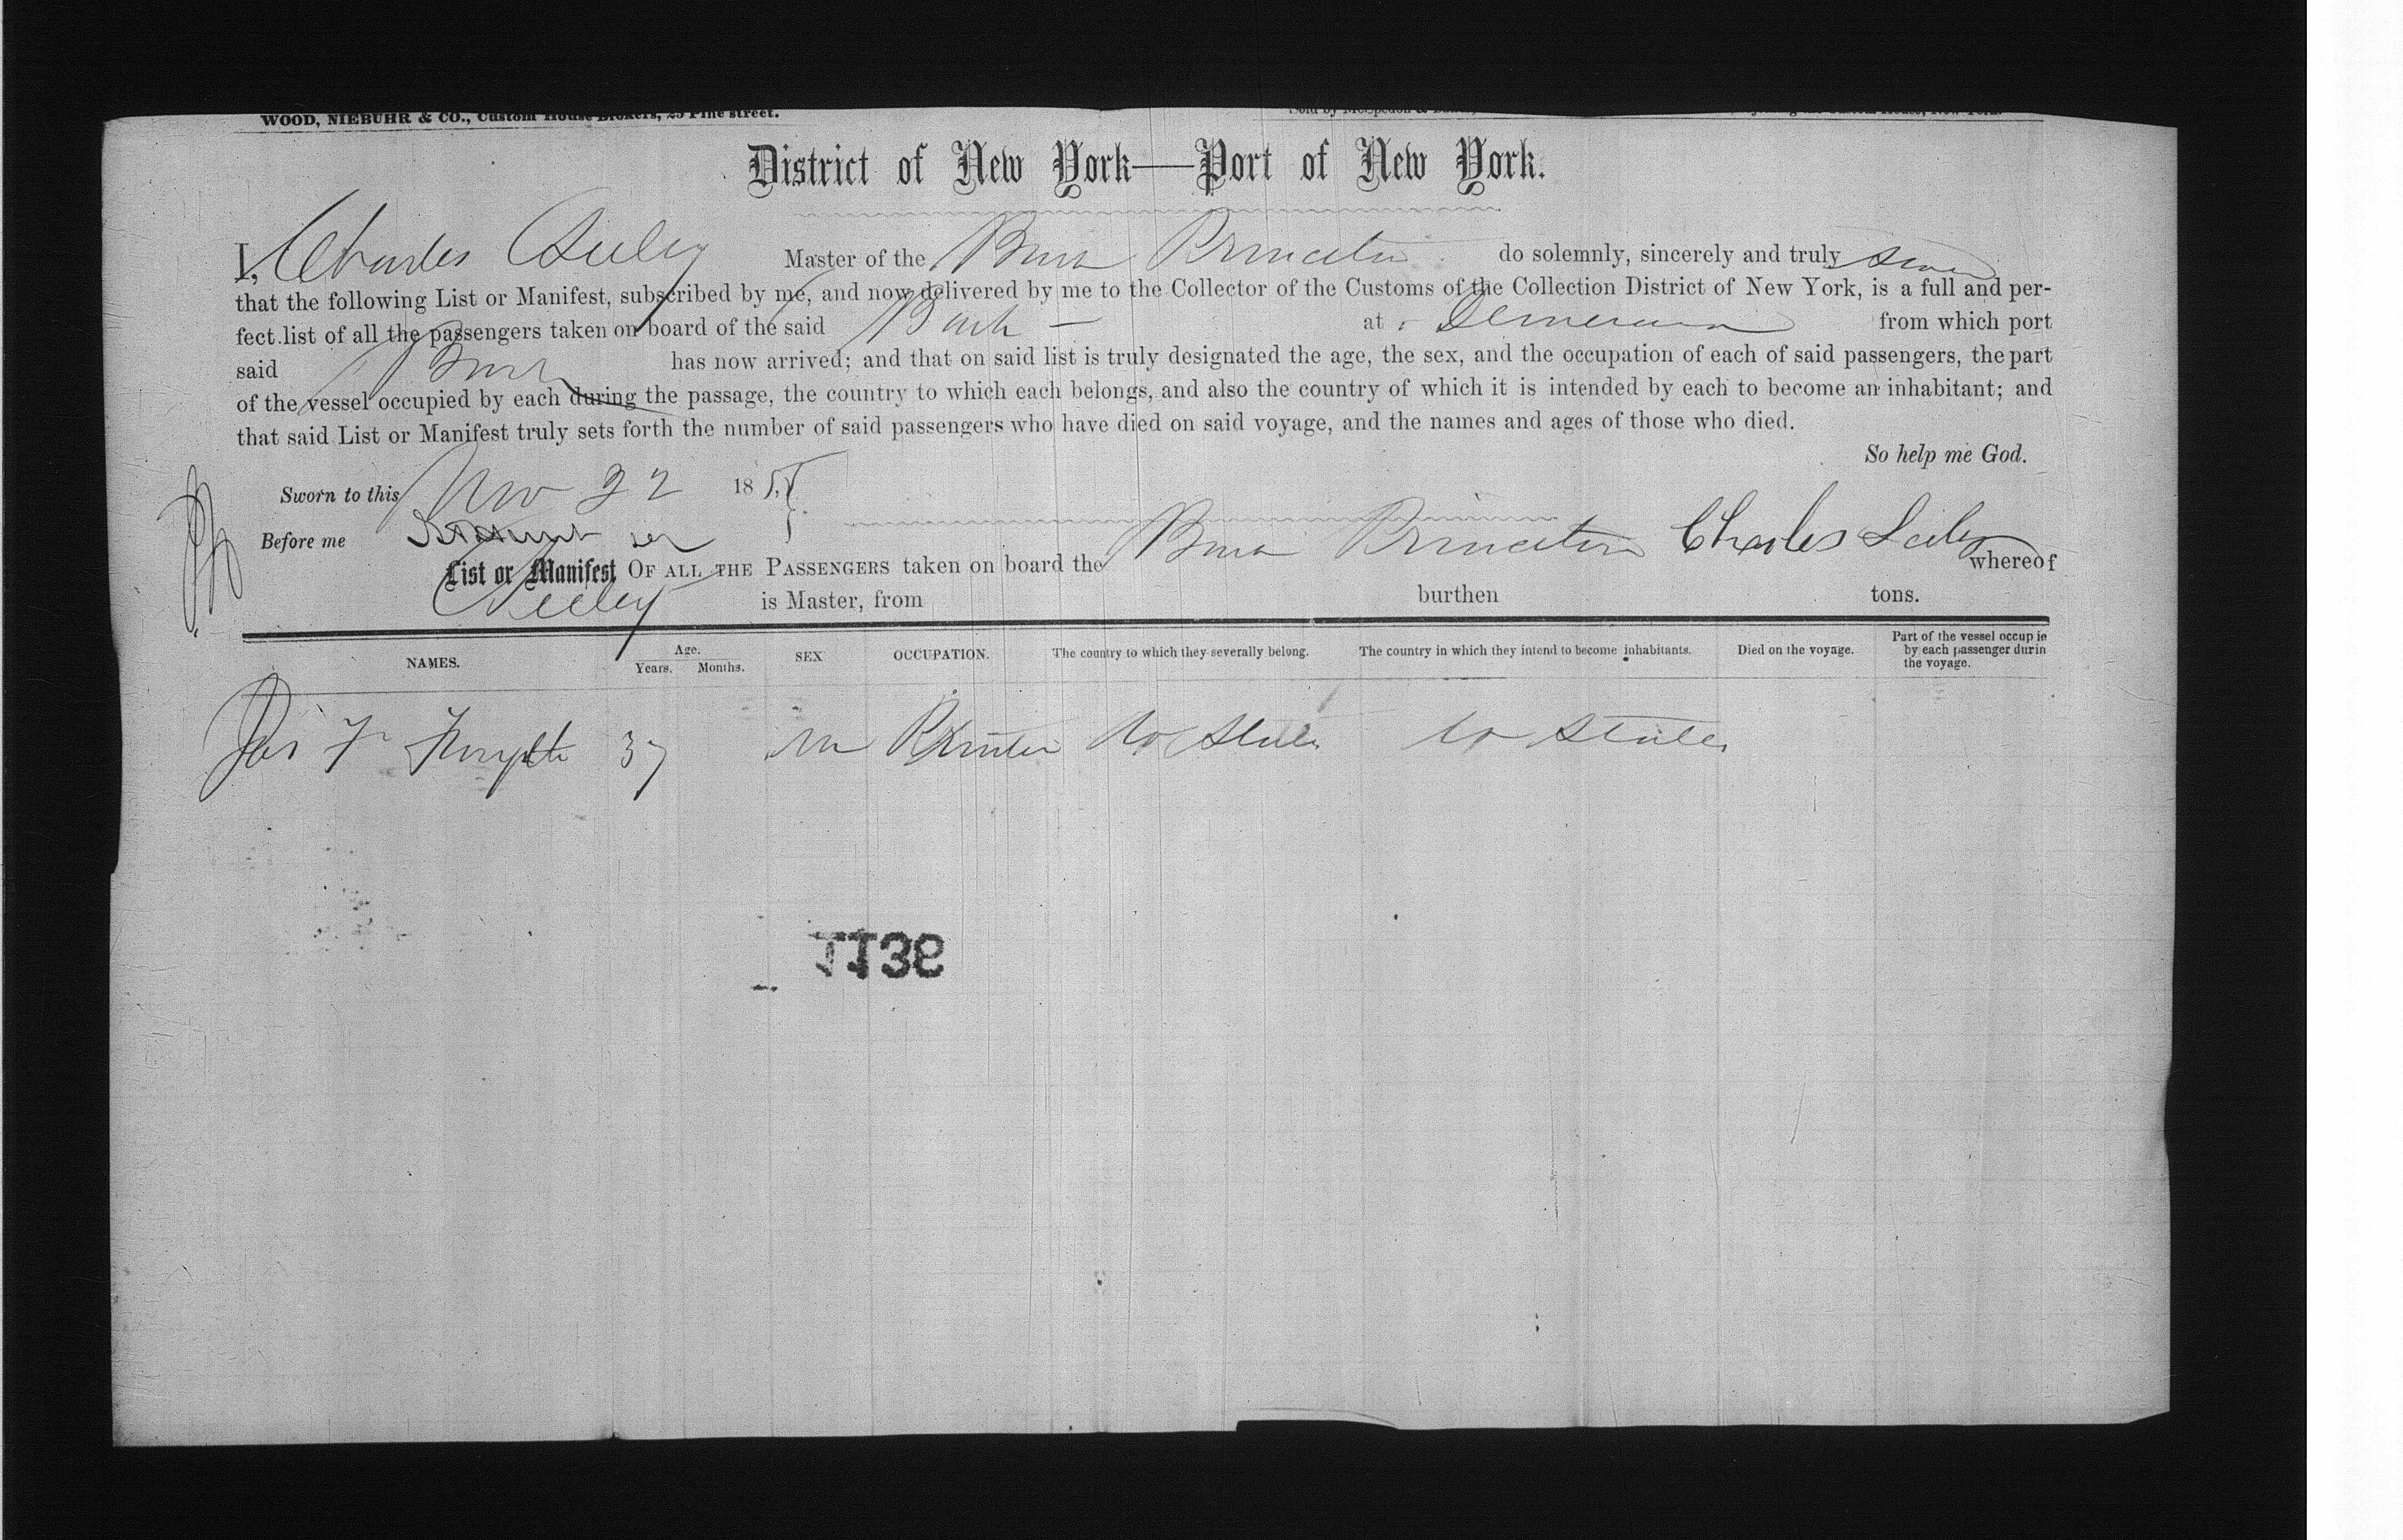 WOOD, NIEBUHR & CO., Custom House Brokers, 25 Pine street.
District of New York—Port of New York.
I, Charles Seeley Master of the Bark Princeton do solemnly, sincerely and truly swear
that the following List or Manifest, subscribed by me, and now delivered by me to the Collector of the Customs of the Collection District of New York, is a full and per-
fect list of all the passengers taken on board of the said Bark — at Demerara from which port
said Bark has now arrived; and that on said list is truly designated the age, the sex, and the occupation of each of said passengers, the part
of the vessel occupied by each during the passage, the country to which each belongs, and also the country of which it is intended by each to become an inhabitant; and
that said List or Manifest truly sets forth the number of said passengers who have died on said voyage, and the names and ages of those who died.
So help me God.
Sworn to this Nov 22 1855
Before me
Charles Seeley
List or Manifest OF ALL THE PASSENGERS taken on board the Bark Princeton whereof
Seeley is Master, from burthen tons.
NAMES. Age. Years. Months. SEX OCCUPATION. The country to which they severally belong. The country in which they intend to become inhabitants. Died on the voyage. Part of the vessel occupie by each passenger durin the voyage.
Jas F Forsyth 37 m Printer U States U States